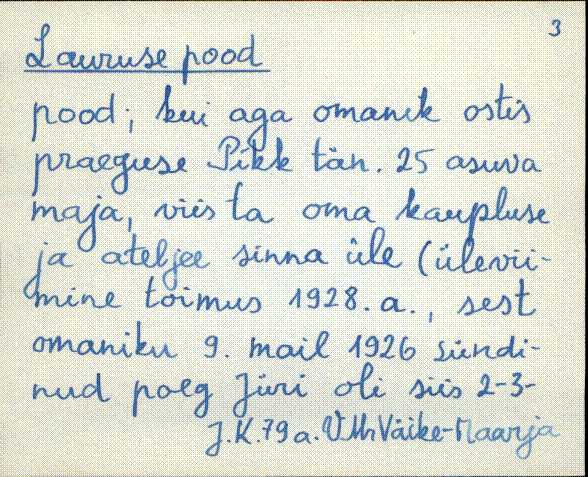 3
Lauruse pood
pood; kui aga omanik ostis
praeguse Pikk tän. 25 asuva
maja, viis ta oma kaupluse
ja ateljee sinna üle (ülevii-
mine toimus 1928. a., sest
omaniku 9. mail 1926 sündi-
nud poeg Jüri oli siis 2-3-
J.K. 79 a. VMr Väike-Maarja